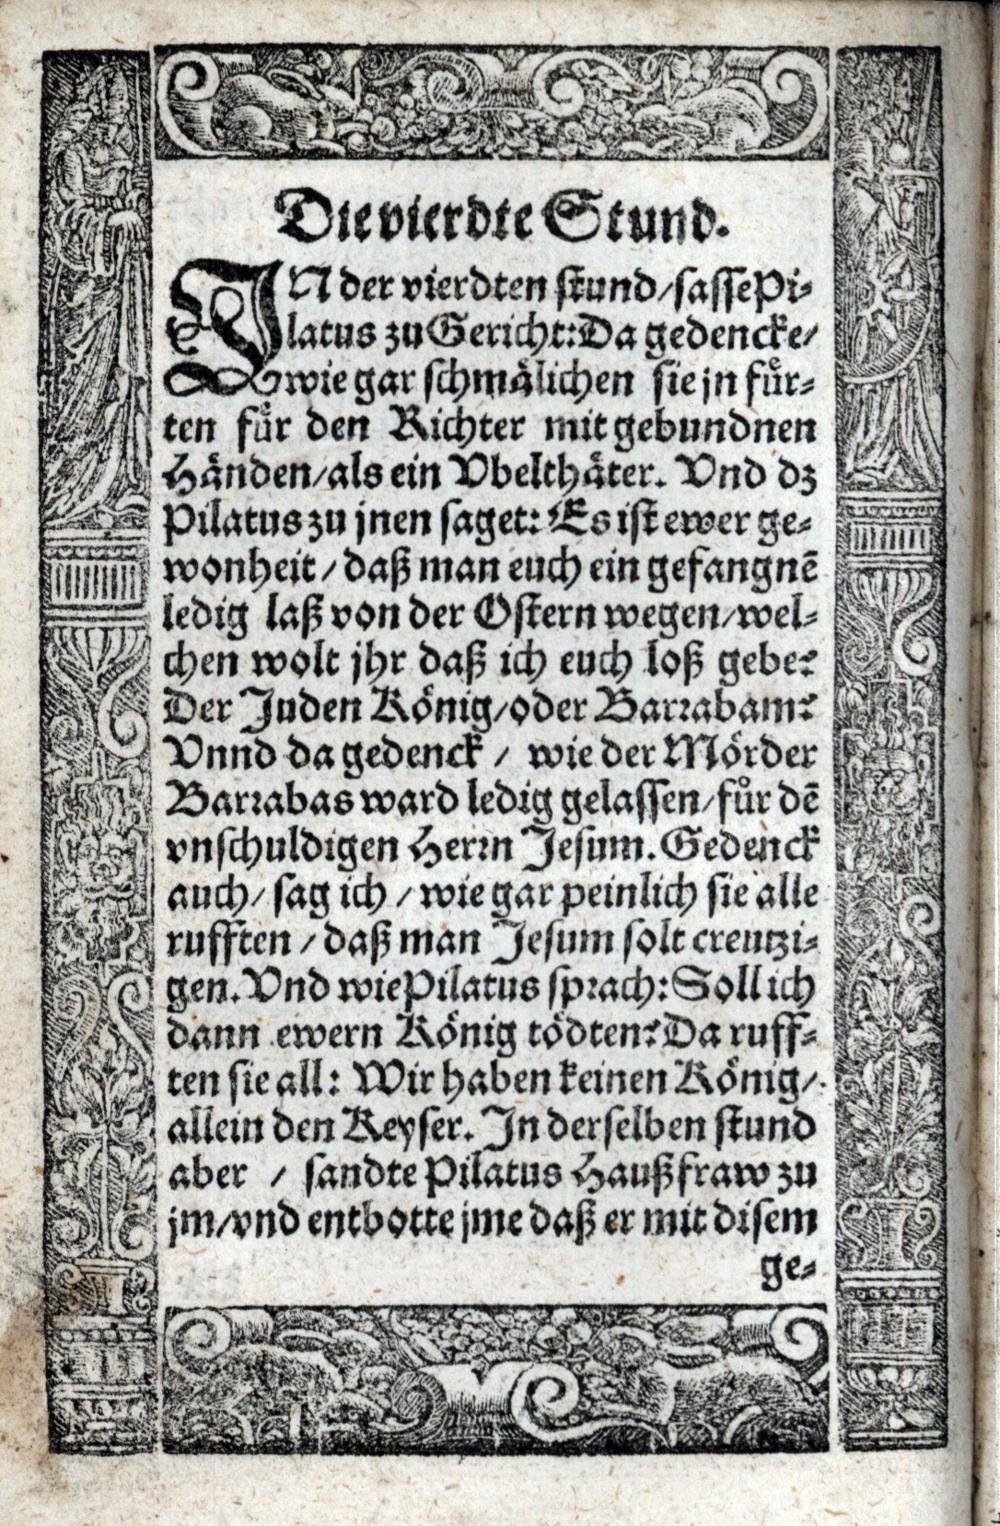 Die vierdte Stund.
IN der vierdten stund/sasse Pi-
latus zu Gericht: Da gedencke/
wie gar schmälichen sie jn fuͤr-
ten fuͤr den Richter mit gebundnen
Händen/als ein Vbelthäter. Vnd dz
Pilatus zu jnen saget: Es ist ewer ge-
wonheit/daß man euch ein gefangnē
ledig laß von der Ostern wegen/wel-
chen wolt jhr daß ich euch loß gebe?
Der Juden König/oder Barrabam?
Vnnd da gedenck / wie der Mörder
Barrabas ward ledig gelassen/fuͤr dē
vnschuldigen Herrn Jesum. Gedenck
auch/sag ich / wie gar peinlich sie alle
rufften / daß man Jesum solt creutzi-
gen. Vnd wie Pilatus sprach: Soll ich
dann ewern König tödten? Da ruff-
ten sie all: Wir haben keinen König/
allein den Keyser. In derselben stund
aber / sandte Pilatus Haußfraw zu
jm/vnd entbotte jme daß er mit disem
ge-